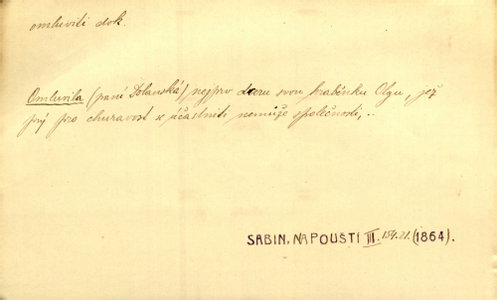 omluviti dok.
Omluvila (paní Dolanská) nejprv dceru svou hraběnku Olgu, jež
prý pro churavost se účastniti nemůže společnosti, ..
SABIN, NA POUŠTI III. 154.21. (1864).